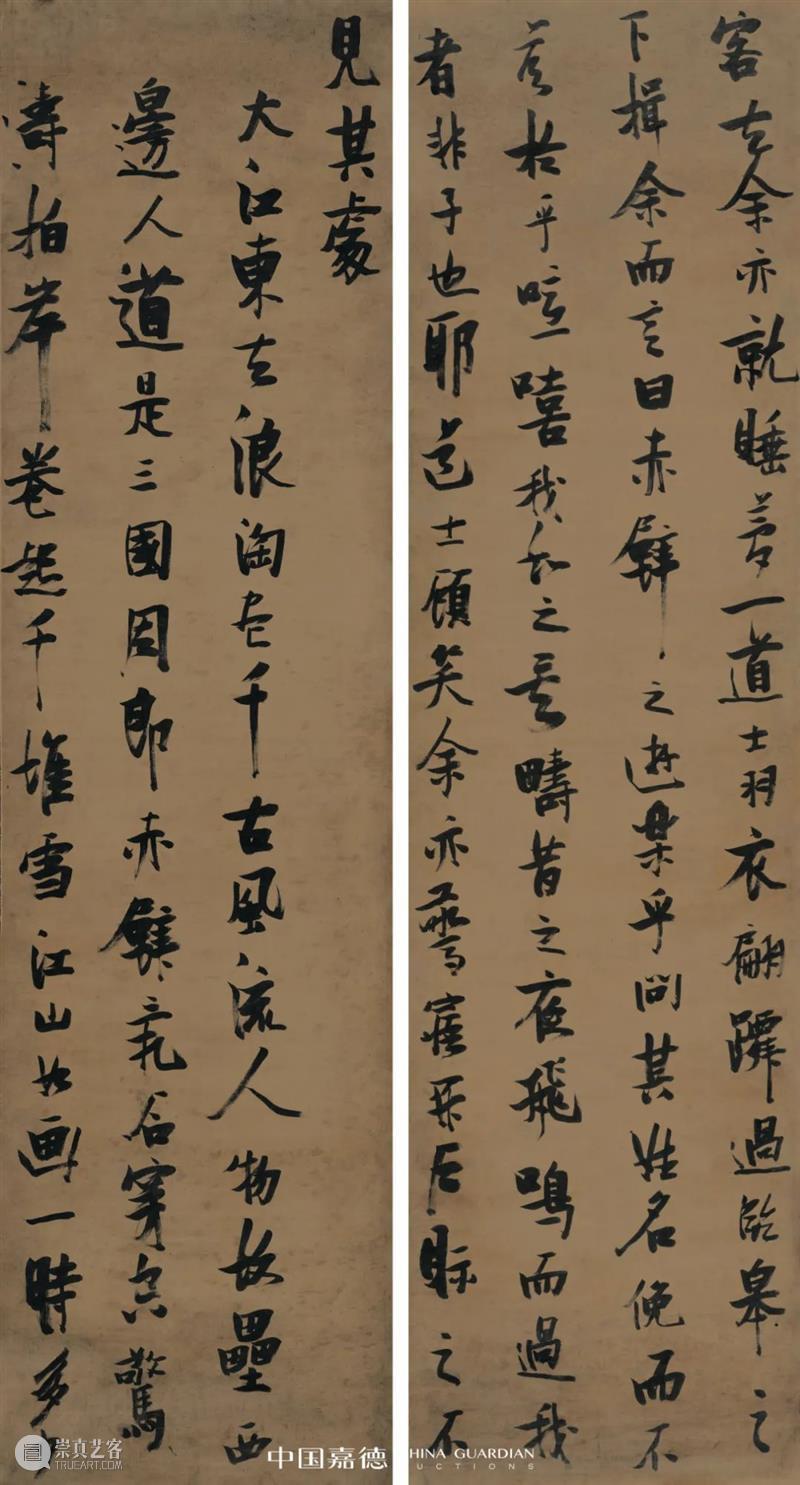 客去余亦就睡夢一道士羽衣翩躚過臨皋之
下揖余而言曰赤壁之遊樂乎問其姓名俛而不
荅於乎噫嘻我知之矣疇昔之夜飛鳴而過我
者非子也耶道士顧笑余亦驚寤開戶視之不
見其處
大江東去浪淘尽千古風流人物故壘西
邊人道是三國周郎赤壁亂石穿空驚
濤拍岸卷起千堆雪江山如画一時多少
中国嘉德
HINA GUARDIAN
UCTIONS
崇真艺客
TRUEART.COM